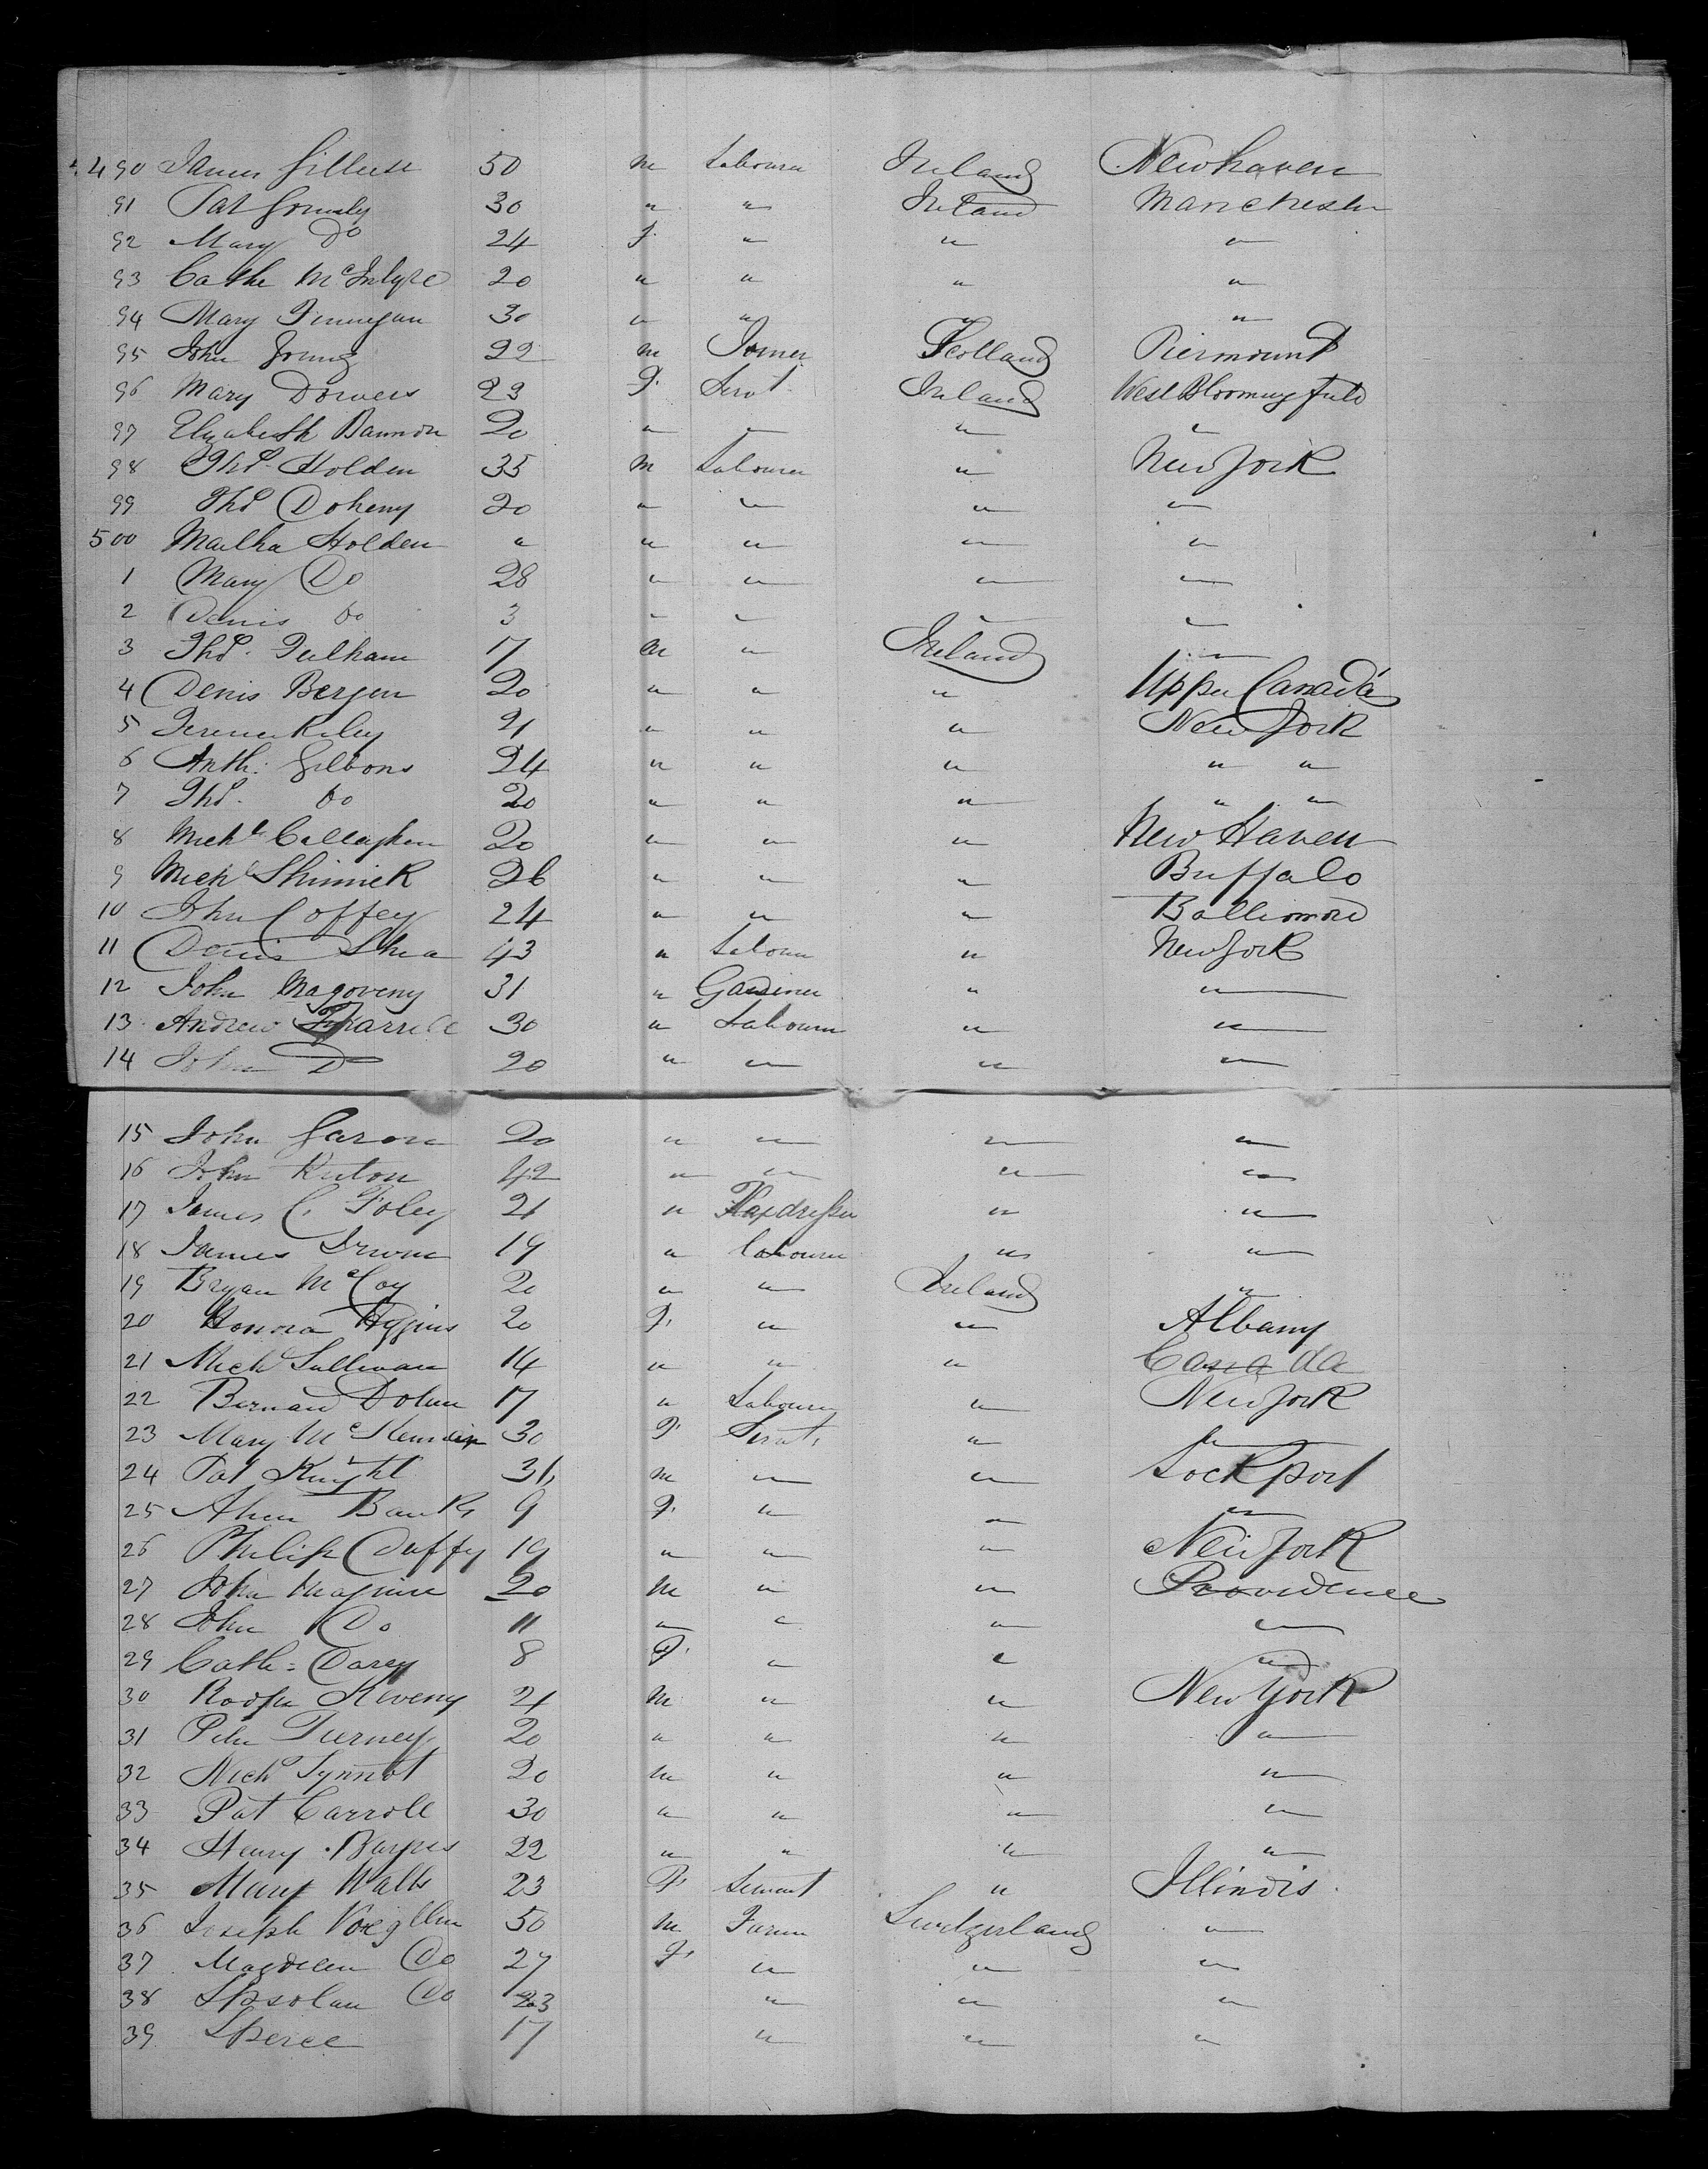 490 James Gilleese 50 m Labourer Ireland Newhaven
91 Pat Gormly 30 " " Ireland Manchester
92 Mary Do 24 F. " " "
93 Cathe McIntyre 20 " " " "
94 Mary Finnegan 30 " " " "
95 John Young 22 m Joiner Scotland Piermount
96 Mary Dowers 23 F. Servt Ireland West Bloomingfield
97 Elizabeth Bannon 20 " " " "
98 Thos Holden 35 m Labourer " New York
99 Thos Doheny 20 " " " "
500 Martha Holden " " " " "
1 Mary Do 28 " " " "
2 Denis Do 3 " " " "
3 Thos. Fulham 17 m " Ireland "
4 Denis Bergen 20 " " " Upper Canada
5 Terence Riley 21 " " " New York
6 Anth: Gibbons 24 " " " " "
7 Thos. Do 20 " " " " "
8 Michl Callaghan 20 " " " New Haven
9 Michl Shinnick 26 " " " Buffalo
10 John Coffey 24 " " " Baltimore
11 Denis Shea 43 " Labour " New York
12 John Magoveny 31 " Gardiner " "
13 Andrew Farrell 30 " Labourer " "
14 John Do 20 " " " "
15 John Garon 20 " " " "
16 John Ruton 42 " " " "
17 James C. Foley 21 " Flaxdresser " "
18 James Irwin 19 " Labourer " "
19 Bryan McCoy 20 " " Ireland "
20 Honora Higgins 20 F. " " Albany
21 Michl Sullivan 14 " " " Canada
22 Bernard Dolan 17 " Labourer " New York
23 Mary Mc 30 F. Servt. " "
24 Pat Knight 36 m " " Lockport
25 Banks 9 F. " " "
26 Philip Duffy 19 " " " New York
27 John Maguire 20 m " " Providence
28 John Do 11 " " " "
29 Cath: Darcy 8 F. " " "
30 Keveny 21 m " " New York
31 Peter Tierney 20 " " " "
32 Nichs Synnot 20 m " " "
33 Pat Carroll 30 " " " "
34 Henry 22 " " " "
35 Mary Walls 23 F. Servant " Illinois.
36 Joseph Voegllin 50 m Farmer Switzerland "
37 Magdelen Do 27 F. " " "
38 Do 23 " " "
39 17 " " "